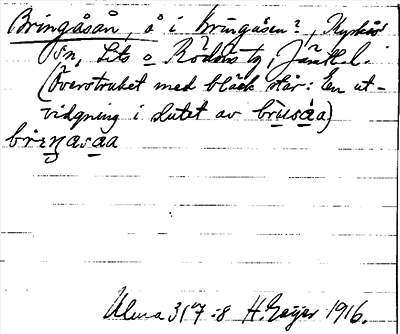 Bringåsån, å i Bringåsen?, Kyrkås
sn, Lits o Rödöns tg, Jämtl.
(Överstruket med bläck står: En ut-
vidgning i slutet av brùsåa)
briŋasaa
Ulma 317:8 H. Geijer 1916.